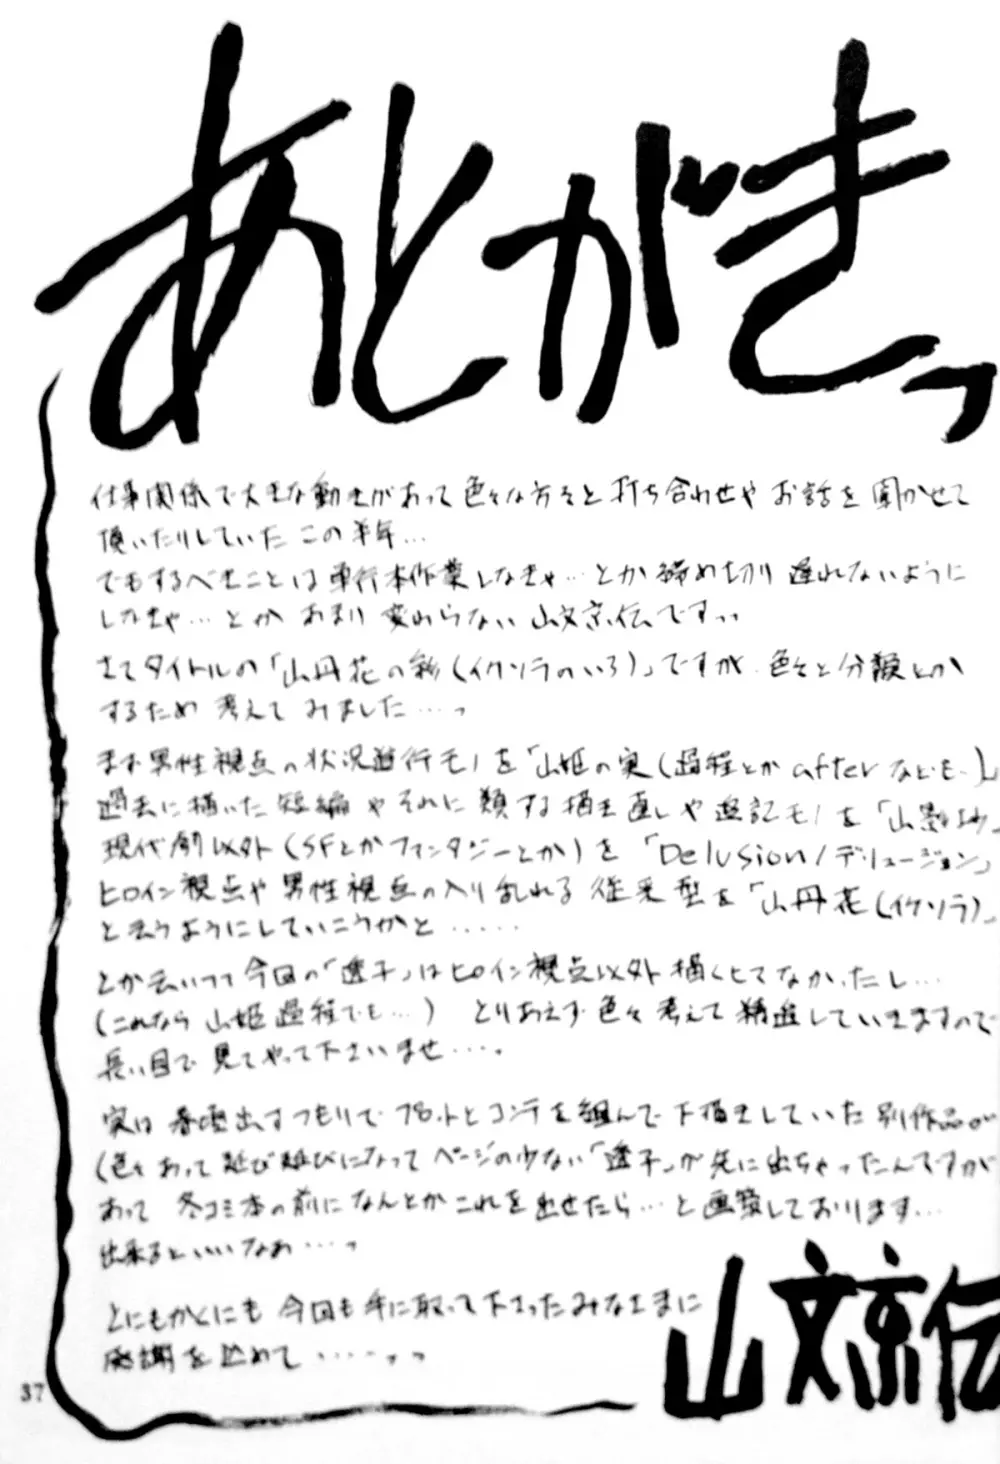 あとがきっ
仕事関係で大きな動きがあって色々な方々と打ち合わせやお話を聞かせて
頂いたりしていたこの半年…
でもするべきことは単行本作業しなきゃ…とか締め切り遅れないように
しなきゃ…とかあまり変わらない山文京伝ですっっ
さてタイトルの「山丹花の彩(イケソラのいろ)」ですが、色々と分類とか
するため考えてみました…っ
まず男性視点の状況進行モノを「山姫の実(過程とかafterなども)」
過去に描いた短編やそれに類する描き直しや追記モノを「山
現代劇以外(SFとかファンタジーとか)を「Delusion/デリュージョン」
ヒロイン視点や男性視点の入り乱れる従来型を「山丹花(イケソラ)」
と云うようにしていこうかと.....
とか云いつつ今回の「透子」はヒロイン視点以外描くヒマなかったし…
(これなら山姫過程でも…) とりあえず色々考えて精進していきますので
長い目で見てやって下さいませ….
実は春出すつもりでプロットとコンテを組んで下描きしていた別作品が
(色々あって延び延びになってページの少ない「透子」が先に出ちゃったんですが
あって冬コミ本の前になんとかこれを出せたら…と画策しております…
出来るといいなぁ…っ
とにもかくにも今回も手に取って下さったみなさまに
感謝を込めて……っっ
山文京伝
37